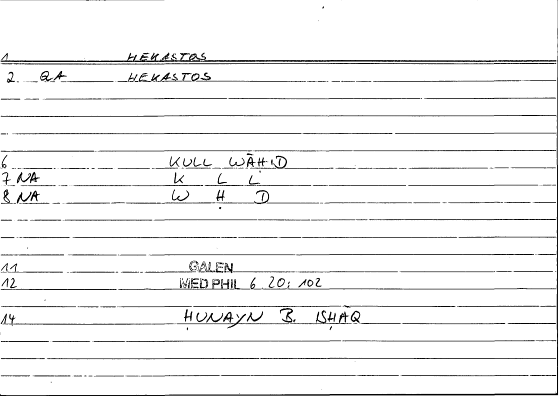 1 HEKASTOS
2. QA HEKASTOS
6 KULL WĀḤID
7 NA K L L
8 NA W Ḥ D
11 GALEN
12 MED PHIL 6 20; 102
14 ḤUNAYN B. ISḤĀQ